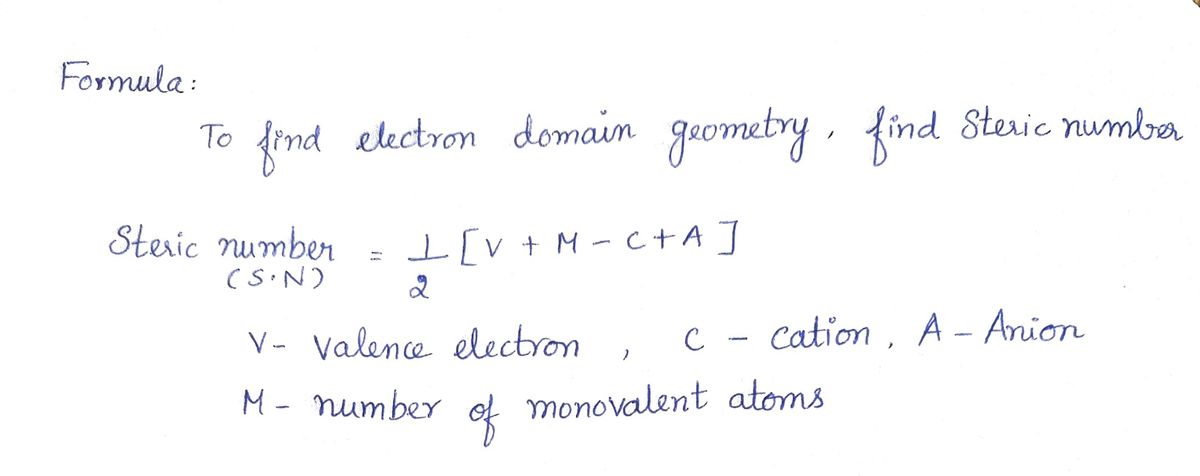 Formula:
To find electron domain geometry, find Steric number
Steric number = 1/2 [V + M - C + A]
(S.N)
V - Valence electron, C - Cation, A - Anion
M - number of monovalent atoms